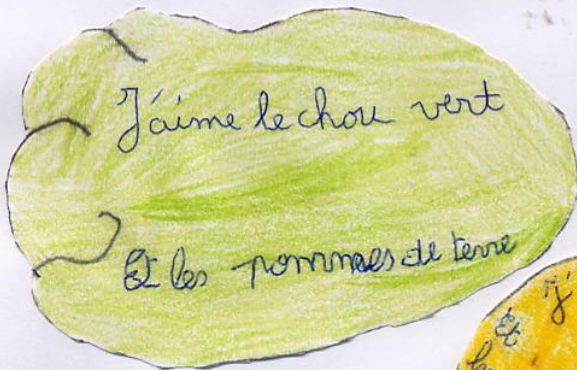 J'aime le chou vert
Et les pommes de terre
J'
Et